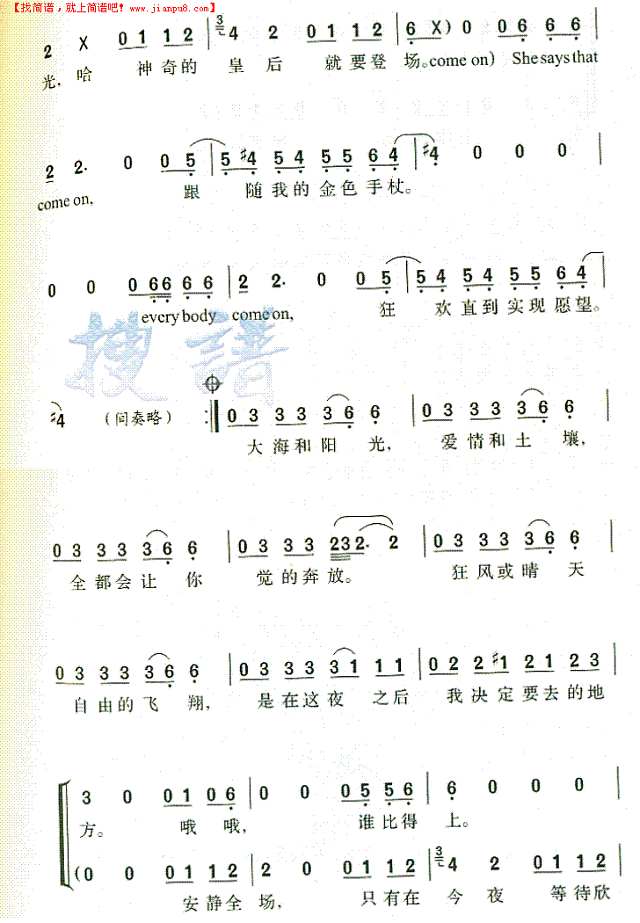 【找简谱，就上简谱吧！www.jianpu8.com】
2 X 0 1 1 2 4 2 0 1 1 2 6 X) 0 0 6 6 6
光，哈 神奇的 皇 后 就要登 场。come on) She says that
2 2· 0 0 5 5 #4 5 4 5 5 6 4 #4 0 0 0
come on, 跟 随我的金色手杖。
0 0 0 66 6 6 2 2· 0 0 5 5 4 5 4 5 5 6 4
every body come on, 狂 欢直到实现愿望。
#4 （间奏略） 0 3 3 3 3 6 6 0 3 3 3 3 6 6
大海和阳 光， 爱情和土 壤，
搜谱
0 3 3 3 3 6 6 0 3 3 3 232· 2 0 3 3 3 3 6 6
全都会让 你 觉的奔放。 狂风或晴 天
0 3 3 3 3 6 6 0 3 3 3 3 1 1 1 0 2 2 #1 2 1 2 3
自由的飞 翔， 是在这夜 之后 我决定要去的地
3 0 0 1 0 6 0 0 0 5 5 6 6 0 0 0
方。 哦 哦， 谁比得 上。
(0 0 0 1 1 2 0 0 0 1 1 2 3 4 2 0 1 1 2
安静全 场， 只有在 今 夜 等待欣